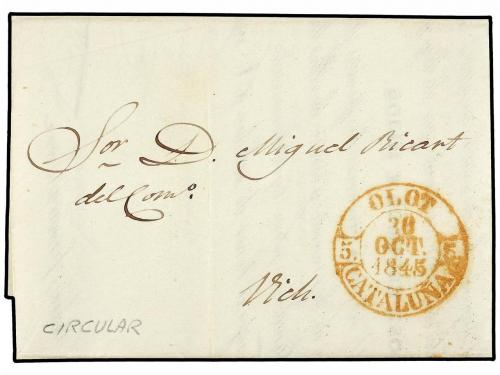 Sor. D. Miguel Ricart
del Como.
OLOT
20
OCT.
5 5
1845
CATALUÑA
Vich.
CIRCULAR